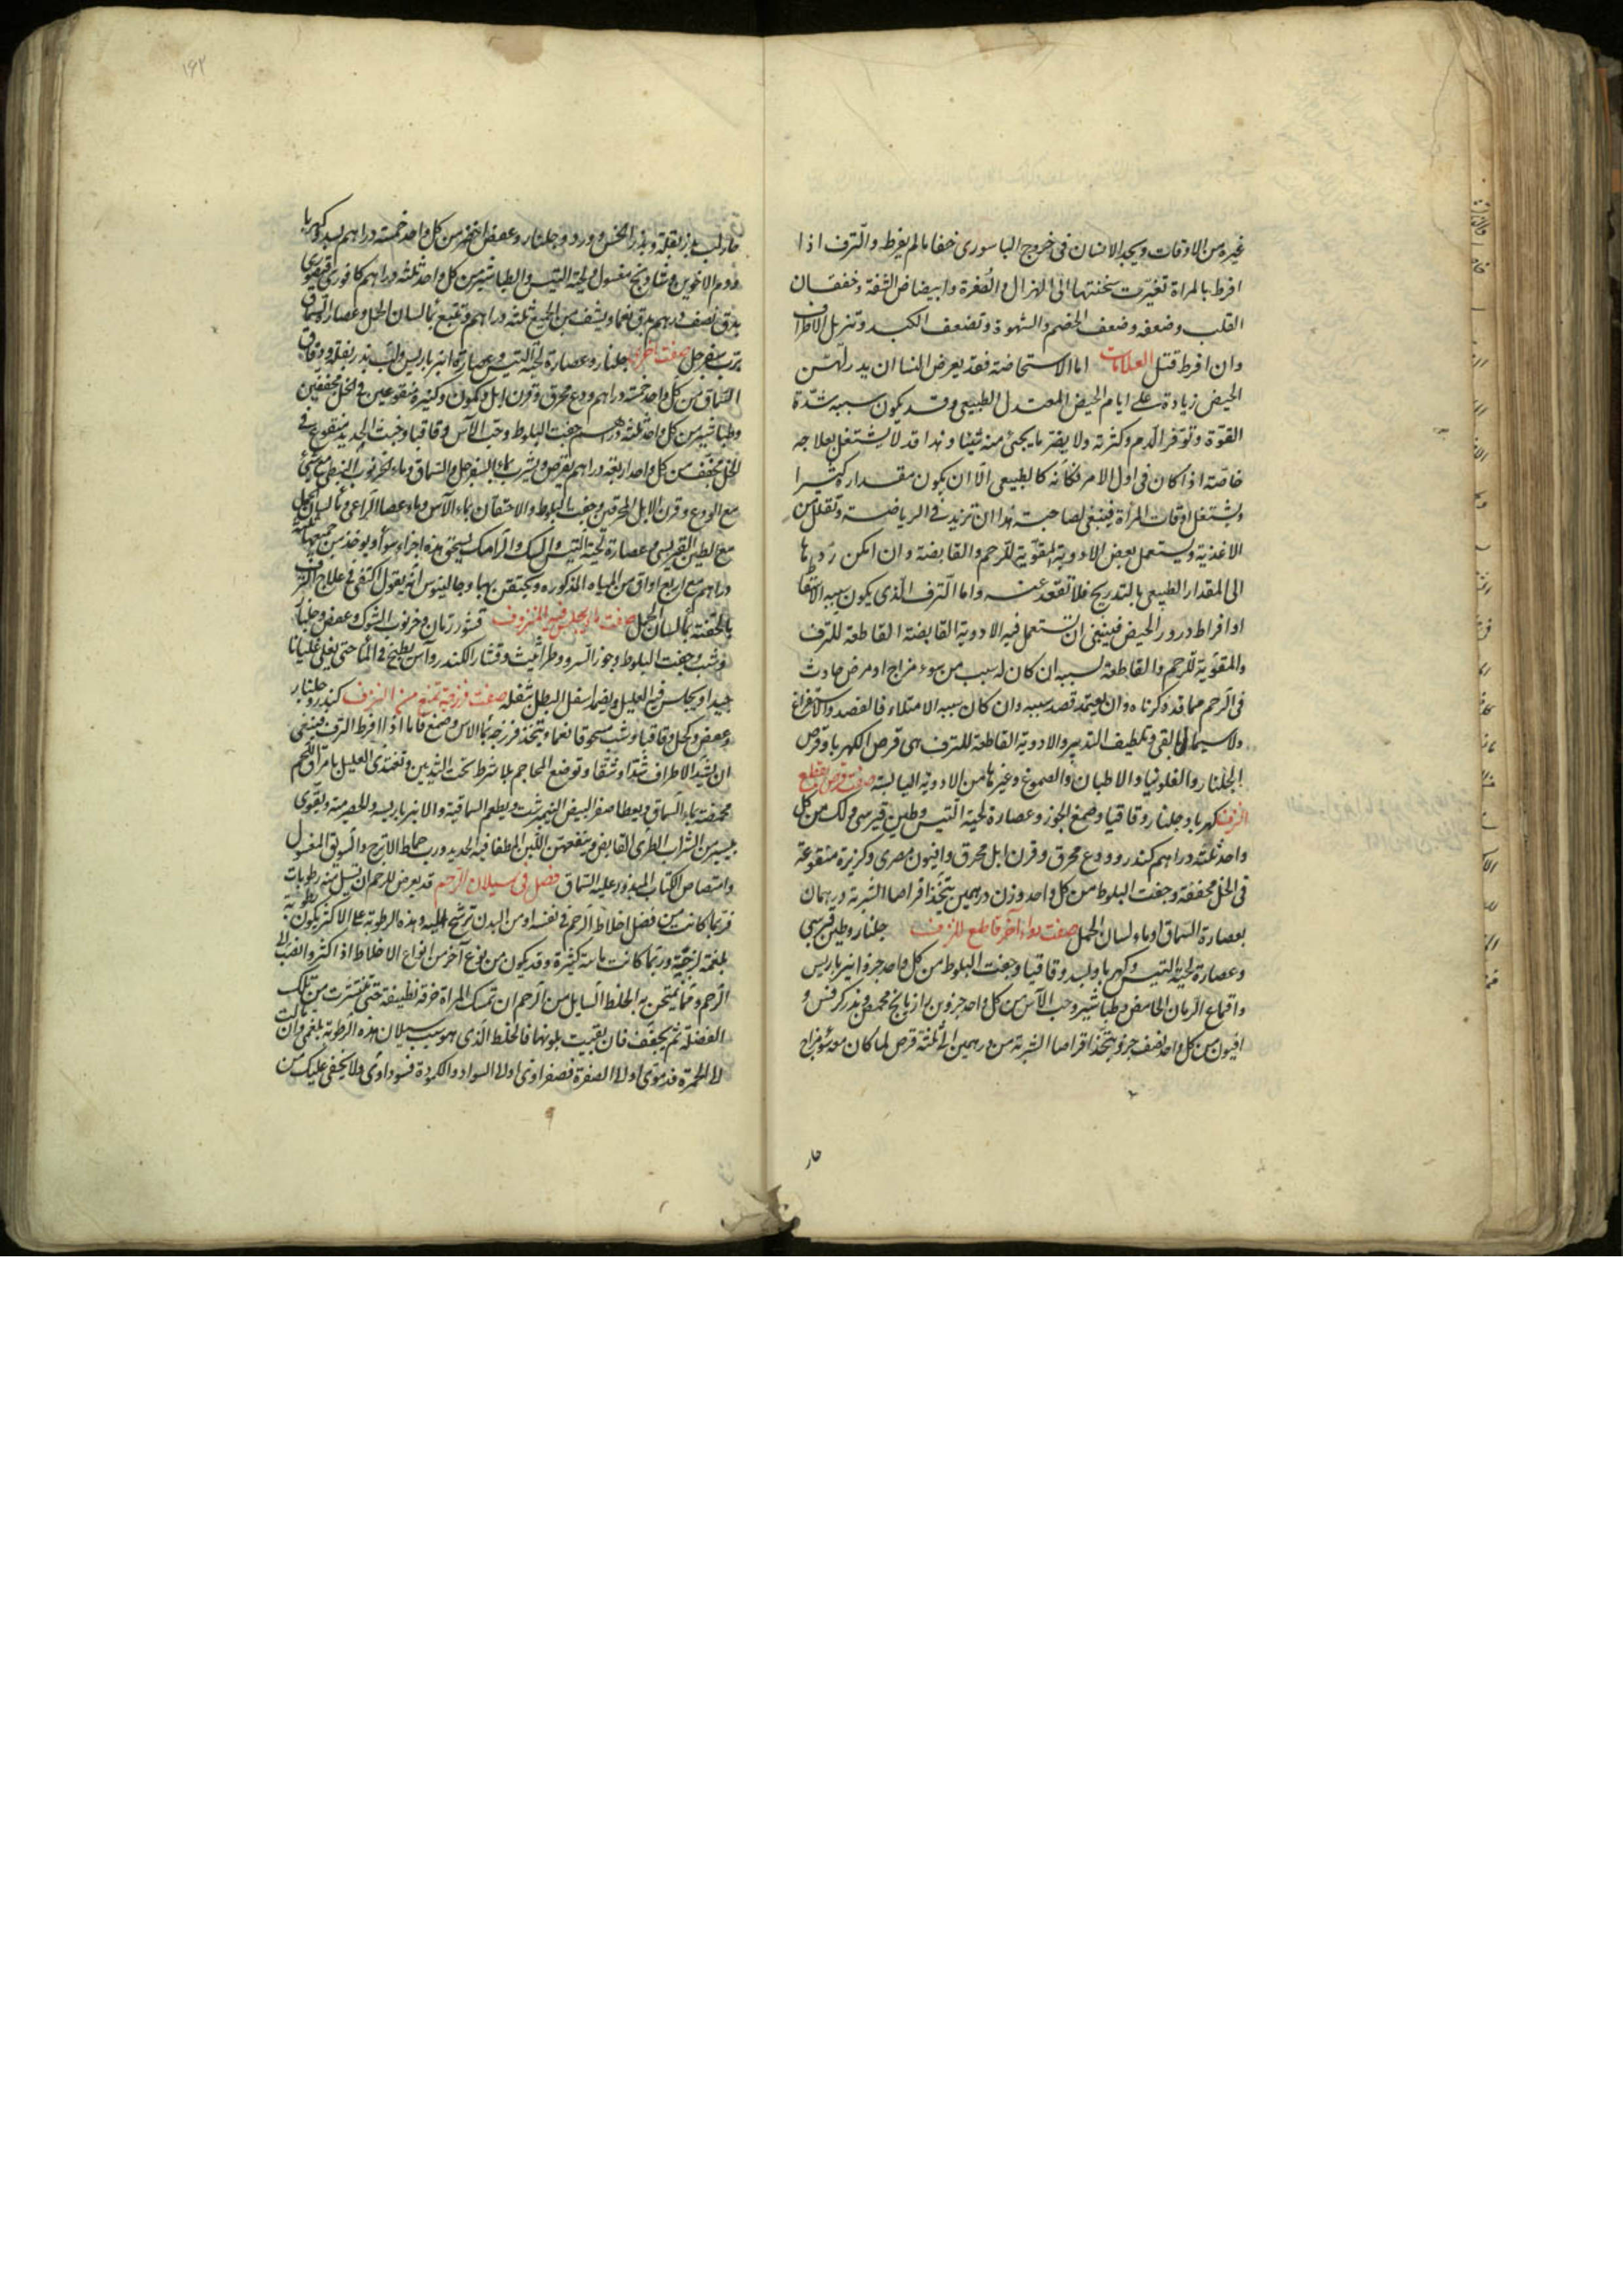 غيره من الاوقات ويجد الانسان فى خروج الباسورى خفا مالم يفرط والنزف اذا
افرط بالمراة تغيرت سحنتها الى الهزال والصفرة وابيضاض الشفة وخفقان
القلب وضعفه وضعف الهضم والشهوة وتضعف الكبد وتتربل الاطراف
وان افرط قتل العلامات اما الاستحاضة فقد يعرض للنسا ان يدر لهن
الحيض زيادة على ايام الحيض المعتدل الطبيعى وقد يكون سببه شدة
القوة وتوفر الدم وكثرته ولا يضر ما يجئ منه شيئا وهذا قد لا يشتغل بعلاجه
خاصة اذا كان فى اول الامر فكانه كالطبيعى الا ان يكون مقداره كثيرا
ويشتغل اوقات المرأة فينبغى لصاحبته هذا ان تزيد فى الرياضة وتقلل من
الاغذية ويستعمل بعض الادوية المقوية للرحم والقابضة وان امكن ردها
الى المقدار الطبيعى بالتدريج فلا تقعد عنه واما النزف الذى يكون سببه الاستحاضة
او افراط درور الحيض فينبغى ان تستعمل فيه الادوية القابضة القاطعة للنزف
والمقوية للرحم والقاطعة لسببه ان كان له سبب من سوء مزاج او مرض حادث
فى الرحم مما قد ذكرناه وان يعتمد قصد سببه وان كان سببه الامتلاء فالفصد والاستفراغ
ولاسيما بالقى وتلطيف التدبير والادوية القاطعة للنزف هى قرص الكهربا وقرص
الجلنار والفلونيا والاطيان والصموغ وغيرها من الادوية اليابسة صفة قرص يقطع
النزف كهربا وجلنار وقاقيا وصمغ الجوز وعصارة لحية التيس وطين قبرسى ولك من كل
واحد ثلثة دراهم كندر وودع محرق وقرن ايل محرق وافيون مصرى وكزبرة منقوعة
فى الخل مجففة وجفت البلوط من كل واحد وزن درهمين يتخذ اقراصا الشربة درهمان
بعصارة السماق او ماء لسان الحمل صفت دواء آخر قاطع للنزف جلنار وطين قبرسى
وعصارة لحية التيس وكهربا وبسد وقاقيا وجفت البلوط من كل واحد جزء وانبرباريس
واقماع الرمان الحامض وطباشير وحب الآس من كل واحد جزوين رازيانج محمص وبذر كرفس و
افيون من كل واحد نصف جزء ويتخذ اقراصا الشربة من درهمين الى ثلثة قرص لما كان مع سوء مزاج
حار
۱۶۲
حار لب بزر بقلة وبزر الخس وورد وجلنار وعفص اخضر من كل واحد خمسة دراهم بسد وكهربا
ودم الاخوين وشاذنج مغسول ولحية التيس والطباشير من كل واحد ثلثة دراهم كافور قيصورى
يدق نصف درهم يدق ناعما ويشف من الجميع ثلثة دراهم وتتبع بماء لسان الحمل وعصارة السماق
برب سفرجل صفت اخرى جلنار وعصارة لحية التيس وعصارة انبرباريس ولب بذر بقلة وورق
السماق من كل واحد خمسة دراهم ودع محرق وقرن ايل وكمون وكزبرة منقوعين فى الخل مجففين
وطباشير من كل واحد ثلثة دراهم جفت البلوط وحب الآس وقاقيا وخبث الحديد منقوع فى
الخل مجفف من كل واحد اربعة دراهم يقرص ويشرب بماء السفرجل والسماق وماء الخرنوب النبطى مع شئ
مع الودع وقرن الايل المحرقين وجفت البلوط والاحتقان بماء الآس وماء عصا الراعى وماء لسان الحمل
مع الطين القبرسى وعصارة لحية التيس والسك والرامك يسحق هذه اجزاء سواء ويوخذ من جميعها ثلثة
دراهم مع اربع اواق من المياه المذكوره ويحتقن بها وجالينوس انه يقول اكتفى فى علاج النزف
بالحقنة بماء لسان الحمل صفت ماء يجلس فيه المنزوف قشور رمان وخرنوب الشوك وعفص وجلنار
وشب وجفت البلوط وجوز السرو وطراثيث وقشار الكندر وآس يطبخ فى الماء حتى يغلى غليانا
جيدا ويجلس فيه العليل ويضمد اسفل البطن بثفله صفت فرزجة تمنع من النزف كندر وجلنار
وعفص وكحل وقاقيا وشب مسحوقا ناعما ويتخذ فرزجة بماء الاس وصمغ فاما اذا افرط النزف فينبغى
ان يشد الاطراف شدا وثيقا وتوضع المحاجم بلا شرط تحت الثديين وتغتذى العليل بامراق اللحم
محمضة بماء السماق ويعطا صفر البيض النيمبرشت ويطعم السماقية والانبرباريسة والحصرمية ويقوى
بيسير من الشراب الطرى القابض وينفعهن اللبن المطفا فيه الحديد ورب حماض الاترج والسويق المغسول
وامتصاص الكباب المبذور عليه السماق فصل فى سيلان الرحم قد يعرض للرحم ان يسيل منه رطوبات
فربما كانت من فضل اخلاط الرحم فى نفسه او من البدن ترشح اليه وهذه الرطوبة على الاكثر يكون رطوبة
بلغمية لزجة وربما كانت مائية كثيرة وقد يكون من نوع آخر من انواع الاخلاط اذا كثر وانصب الى
الرحم ومما يمتحن به الخلط السايل من الرحم ان تمسك المراة خرقة نظيفة حتى تتشرب من تلك
الفضلة ثم يجفف فان بقيت بلونها فالخلط الذى هو سبب سيلان هذه الرطوبة بلغمى وان مالت
الى الحمرة فدموى او الى الصفرة فصفراوى او الى السواد والكمودة فسوداوى ولا يخفى عليك من